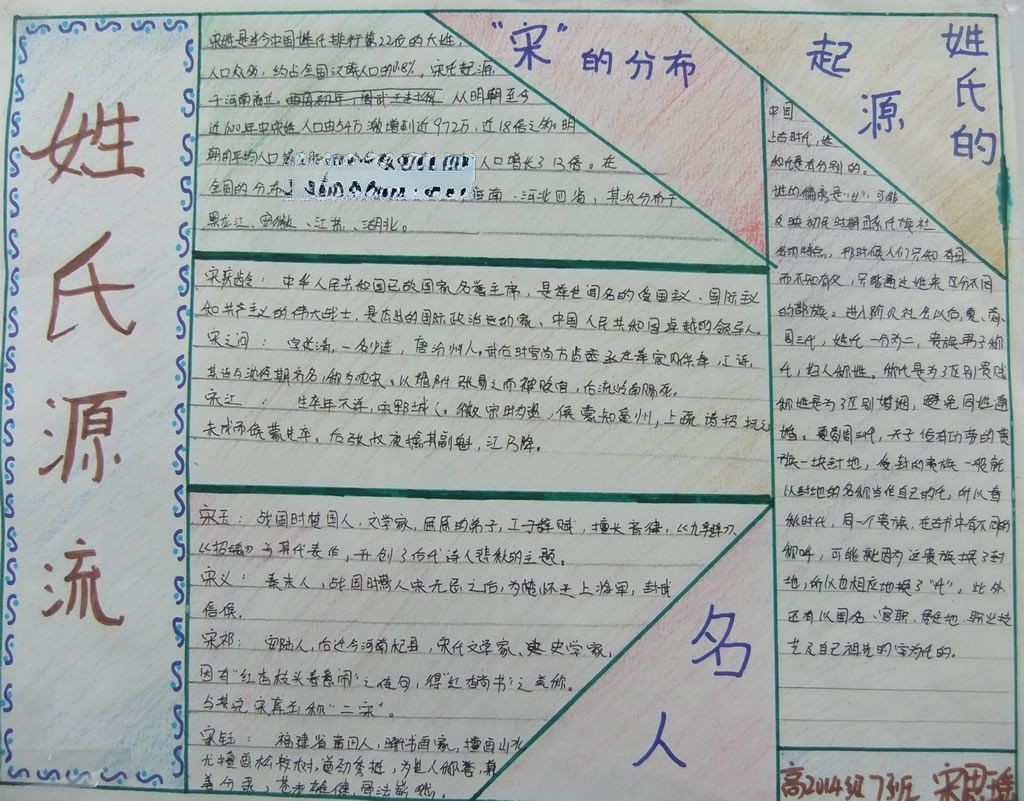 姓氏源流
"宋"的分布
宋姓是当今中国姓氏排行第22位的大姓,
人口众多,约占全国汉族人口的0.8%,宋氏起源
于河南商丘, 从明朝至今
近600年中宋姓人口由54万激增到近972万,近18倍之多。明
朝的平均人口 人口增长了13倍。在
全国的分布 河南、河北四省,其次分布于
黑龙江、安徽、江苏、湖北。
宋庆龄:中华人民共和国已故国家名誉主席,是举世闻名的爱国主义、国际主义
和共产主义的伟大战士,是杰出的国际政治活动家、中国人民共和国卓越的领导人。
宋之问:字延清,一名少连,唐汾州人。武后时官尚方监丞
其诗与沈佺期齐名,称为沈宋。以媚附张易之而被贬官,后流岭南赐死。
宋江:生卒年不详,宋郓城人。徽宗时为盗,侯蒙知亳州,上疏请招抚之
未成而侯蒙先卒。后张叔夜擒其副魁,江乃降。
名人
宋玉:战国时楚国人,文学家,屈原的弟子,工于辞赋,擅长音律,《九辩》
《招魂》为其代表作,开创了后代诗人悲秋的主题。
宋义:秦末人,战国时 人宋无忌之后,为楚怀王上将军,封武
信侯。
宋祁:安陆人,后迁今河南杞县,宋代文学家、史学家,
因有"红杏枝头春意闹"之佳句,得"红杏尚书"之美称。
与其兄宋庠并称"二宋"。
宋钰:福建省莆田人,明代书画家,擅画山水
尤擅画松枝树,道劲秀挺,为世人称誉,兼
善分隶,苍老雄健,
姓氏的起源
中国
上古时代,姓
和氏是有分别的。
姓的偏旁是"女",可能
反映初民时期母系氏族社
会的特点,那时候人们只知有母
而不知有父,只能通过姓来区分不同
的部族。进入阶级社会以后,夏、商、
周三代,姓氏一分为二,贵族男子称
氏,妇人称姓。称氏是为了区别贵贱
称姓是为了区别婚姻,避免同姓通
婚。夏商周三代,天子给有功劳的贵
族一块封地,受封的贵族一般就
以封地的名称当作自己的氏,所以春
秋时代,同一个贵族,在古书中有不同的
称呼,可能就因为这贵族换了封
地,所以也相应地换了"氏"。此外
还有以国名、官职、居住地、职业技
艺及自己祖先的字为氏的。
高2014级7班 宋思瑶